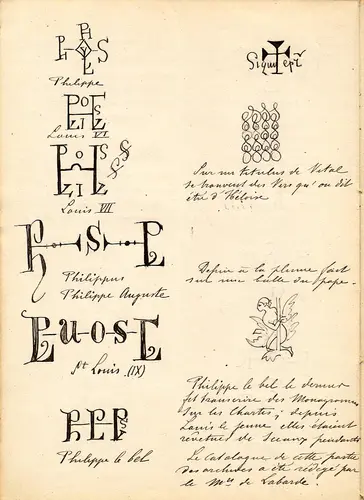 Philippe
Louis VI
Louis VII
Philippus
Philippe Auguste
St Louis (IX)
Philippe le bel
Signu epi
Sur un titulus de Vital
se trouvent des Vers qu'on dit
être d'Héloïse
Dessin à la plume fait
sur une bulle du pape
Philippe le bel le dernier
fit transcrire des Monogrammes
sur les Chartes; depuis
Louis le jeune elles étaient
revêtues de Sceaux pendants
Le Catalogue de cette partie
des archives a été rédigé par
le Mis de Laborde.